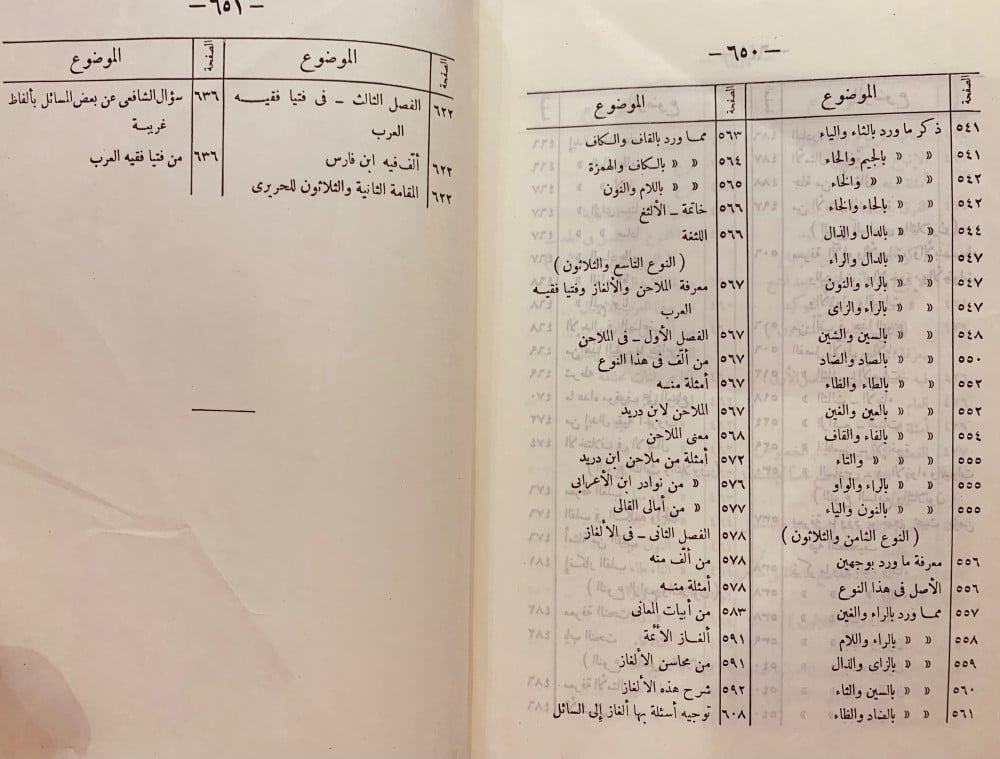 — ٦٥٠ —
الصفحة الموضوع
٥٤١ ذكر ما ورد بالثاء والياء
٥٤١ « « بالجيم والحاء
٥٤٢ « « « والخاء
٥٤٢ « « بالحاء والخاء
٥٤٤ « « بالدال والذال
٥٤٧ « « بالدال والراء
٥٤٧ « « بالراء والنون
٥٤٧ « « بالراء والزاى
٥٤٨ « « بالسين والشين
٥٥٠ « « بالصاد والضاد
٥٥٢ « « بالطاء والظاء
٥٥٢ « « بالعين والغين
٥٥٤ « « بالفاء والقاف
٥٥٥ « « « والتاء
٥٥٥ « « بالراء والواو
٥٥٥ « « بالنون والياء
( النوع الثامن والثلاثون )
٥٥٦ معرفة ما ورد بوجهين
٥٥٦ الأصل فى هذا النوع
٥٥٧ مما ورد بالراء والغين
٥٥٨ « « بالراء واللام
٥٥٩ « « بالزاى والذال
٥٦٠ « « بالسين والثاء
٥٦١ « « بالضاد والظاء
الصفحة الموضوع
٥٦٣ مما ورد بالقاف والكاف
٥٦٤ « « بالكاف والهمزة
٥٦٥ « « باللام والنون
٥٦٦ خاتمة ــ الألثغ
٥٦٦ اللثغة
( النوع التاسع والثلاثون )
٥٦٧ معرفة الملاحن والألغاز وفتيا فقيه
العرب
٥٦٧ الفصل الأول ــ فى الملاحن
٥٦٧ من ألّف فى هذا النوع
٥٦٧ أمثلة منه
٥٦٧ الملاحن لابن دريد
٥٦٨ معنى الملاحن
٥٧٢ أمثلة من ملاحن ابن دريد
٥٧٦ « من نوادر ابن الأعرابى
٥٧٧ « من أمالى القالى
٥٧٨ الفصل الثانى ــ فى الألغاز
٥٧٨ من ألّف منه
٥٧٨ أمثلة منه
٥٨٣ من أبيات المعانى
٥٩١ ألغاز الأئمة
٥٩١ من محاسن الألغاز
٥٩٢ شرح هذه الألغاز
٦٠٨ توجيه أسئلة بها ألغاز إلى السائل
— ٦٥١ —
الصفحة الموضوع
٦٢٢ الفصل الثالث ــ فى فتيا فقيه
العرب
٦٢٢ ألّف فيه ابن فارس
٦٢٢ المقامة الثانية والثلاثون للحريرى
الصفحة الموضوع
٦٣٦ سؤال الشافعى عن بعض المسائل بألفاظ
غريبة
٦٣٦ من فتيا فقيه العرب